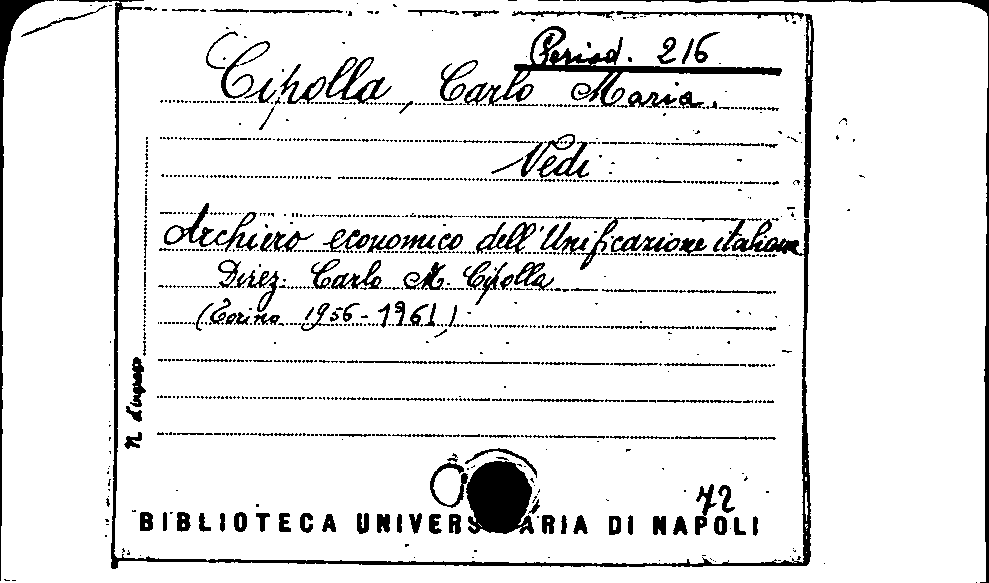 Period. 216
Cipolla, Carlo Maria.
Vedi:
Archivio economico dell'Unificazione italiana
Direz. Carlo M. Cipolla
(Torino 1956-1961)
N. d'ingresso
72
BIBLIOTECA UNIVERSITARIA DI NAPOLI